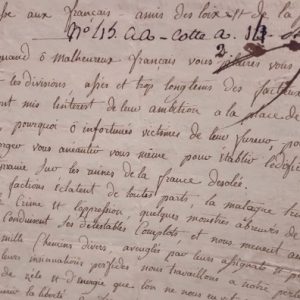 se aux français amis des loix et de la
N° 415. C.A - Cotte A. 114.
2.
quand ô malheureux français vous plairés vous
et les divisions, assés et trop longtems des facteurs
ont mis linteret de leur ambition a la place de
pourquoi ô infortunés victimes de leur fureur, pour
orger vous aneantir vous meme pour etablir ledifice
rannie sur les ruines de la france desolée.
factions éclatent de toutes parts; la
le Crime et l'oppression, quelques monstres abreuvés de
conduisent ses detestables Complots et nous menent au
mille Chemins divers, aveuglés par leurs assignats et
leurs insinuations perfides nous travaillons a notre
de zele et d'énergie que lon ne nous
la liberté